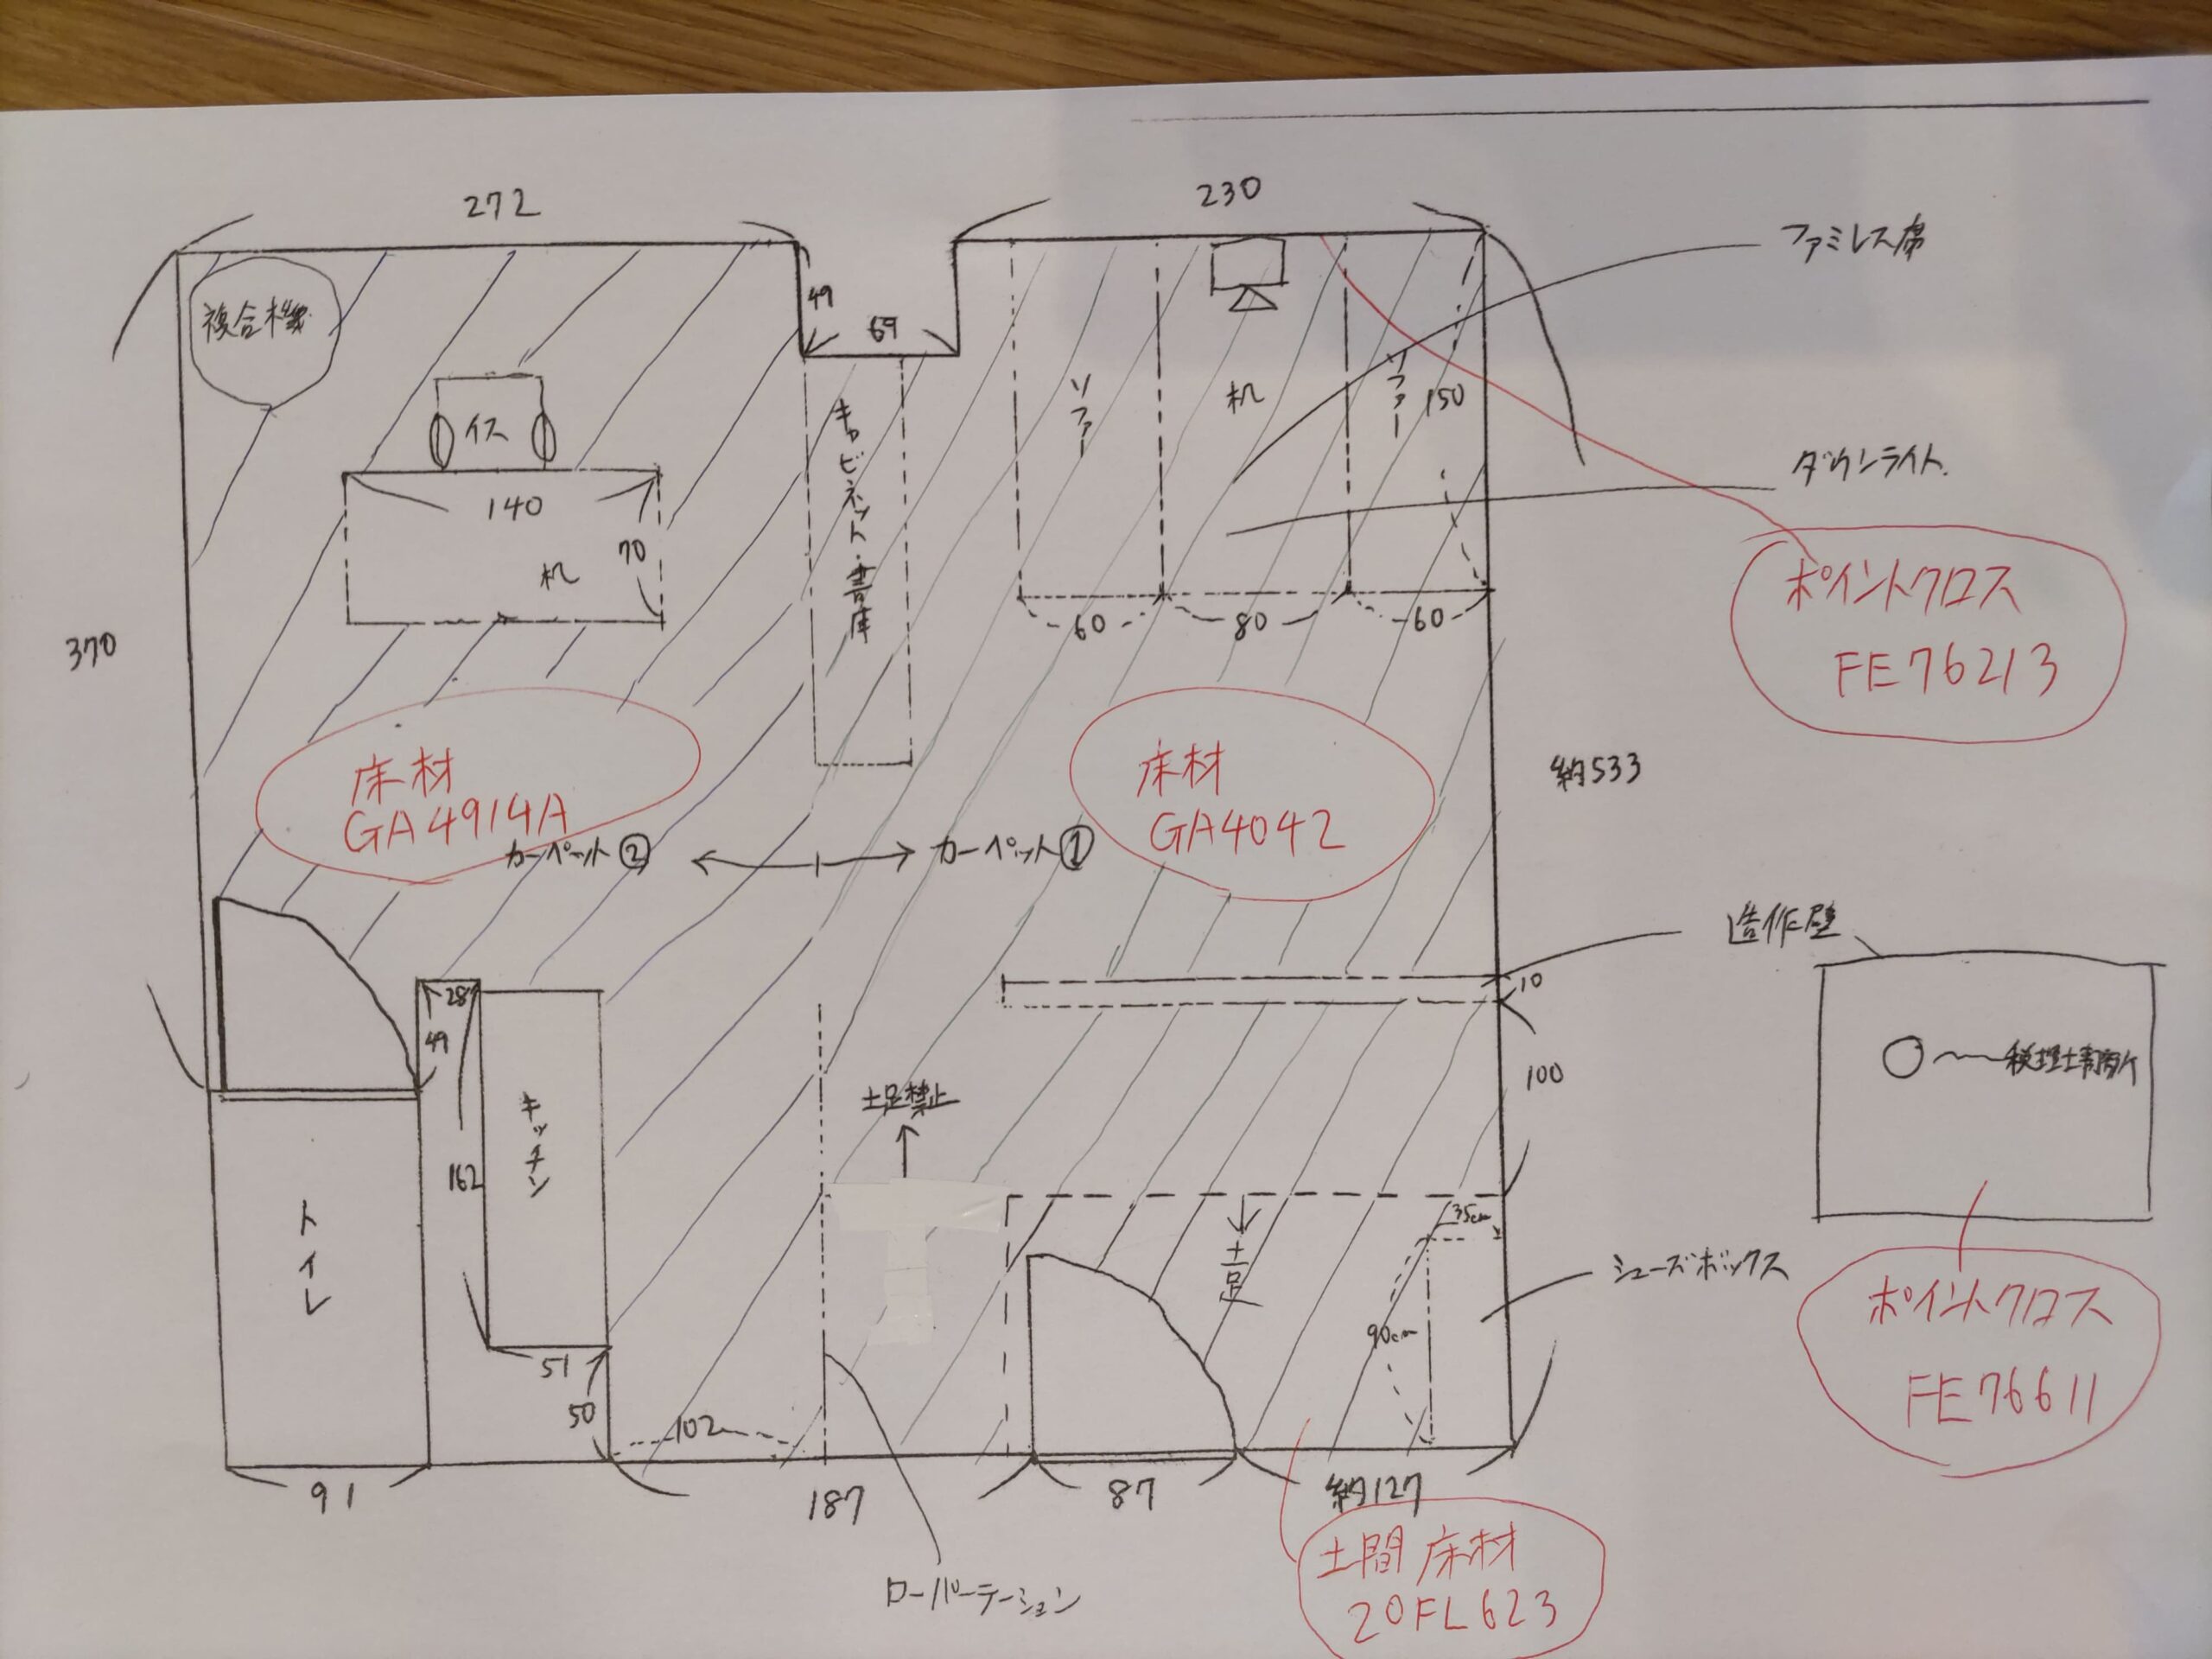 272
230
ファミレス席
複合機
49
69
イス
キャビネット・書庫
ソファー
机
ソファー
150
140
70
机
ダウンライト
ポイントクロス
FE76213
60
80
60
370
約533
床材
GA4914A
カーペット②
床材
GA4042
カーペット①
造作壁
28
49
10
100
○〜税理士事務所
キッチン
土足禁止
162
トイレ
土足
35cm
90cm
シューズボックス
ポイントクロス
FE76611
51
50
102
91
187
87
約127
ローパーテーション
土間床材
20FL623